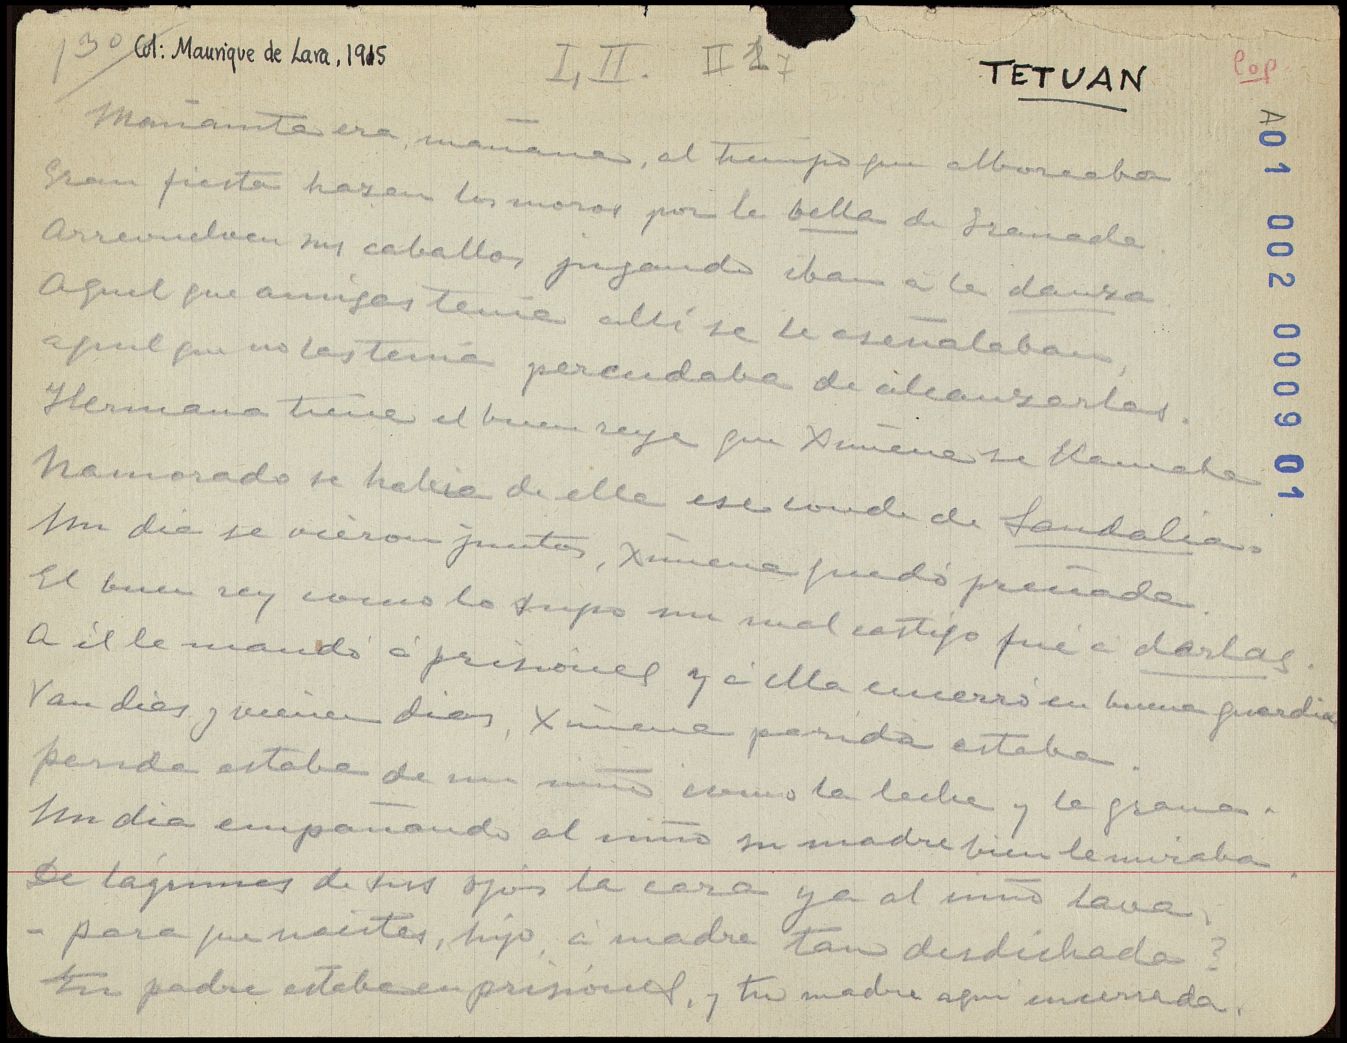 130 Col: Manrique de Lara, 1915
I, II. II 17
TETUAN
Pop
A 01 002 0009 01
Mañanita era, mañana, al tiempo que alboreaba.
Gran fiesta hazen los moros por la bella de Granada.
Arrevuelven sus caballos, jugando iban á la danza.
Aquel que amigas tenía allí se le aseñalaban,
aquel que no las tenía percudaba de alcanzarlas.
Hermana tiene el buen reye que Ximena se llamaba
Namorado se había de ella ese conde de Sandalia.
Un día se vieron juntos, Ximena quedó preñada.
El buen rey como lo supo un mal castigo fué á darlas.
A él le mandó á prisiones y á ella encerró en buena guardia
Van días y vienen días, Ximena parida estaba.
parida estaba de un niño como la leche y la grana.
Un día empañando al niño su madre bien le miraba.
De lágrimas de sus ojos la cara ya al niño lava.
- para que naistes, hijo, á madre tan desdichada?
tu padre estaba en prisiones, y tu madre aquí encerrada.